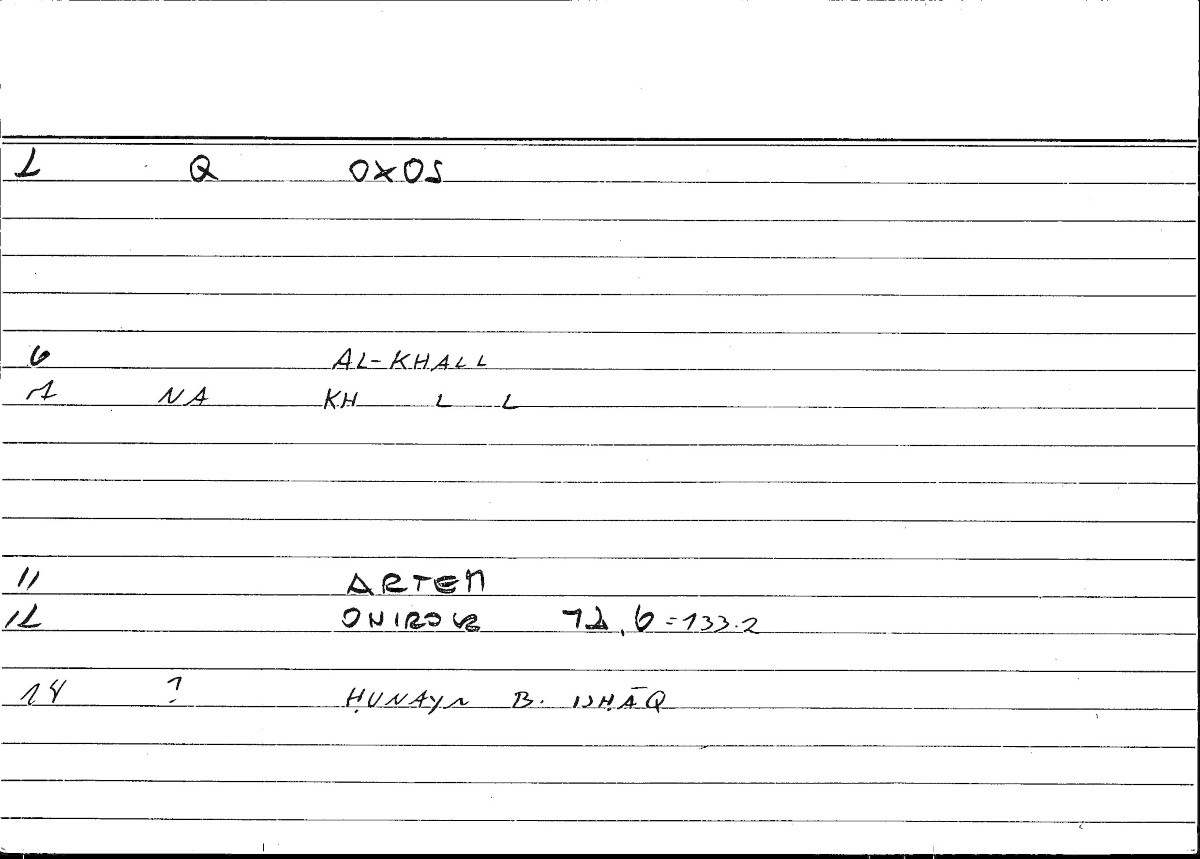 2 Q OXOS
6 AL-KHALL
7 NA KH L L
11 ARTEM
12 ONIROCR 72,6 =133.2
14 ? ḤUNAYN B. ISḤĀQ